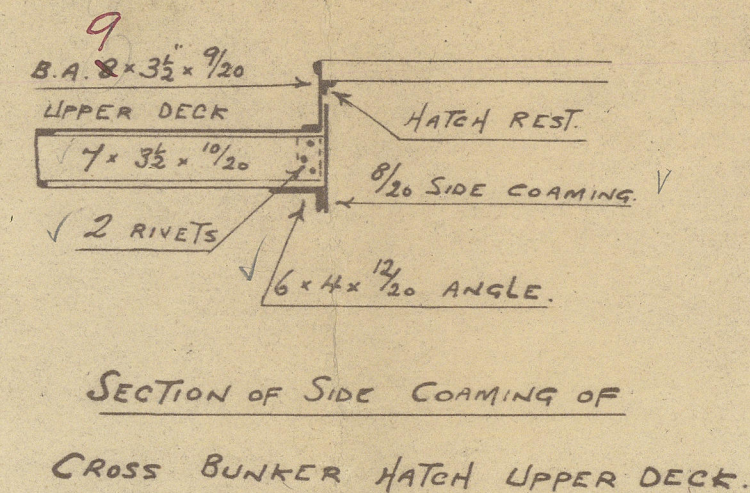 9
B.A. 8 × 3½" × 9/20
UPPER DECK
HATCH REST.
7 × 3½ × 10/20
8/20 SIDE COAMING.
2 RIVETS
6 × 4 × 12/20 ANGLE.
SECTION OF SIDE COAMING OF
CROSS BUNKER HATCH UPPER DECK.